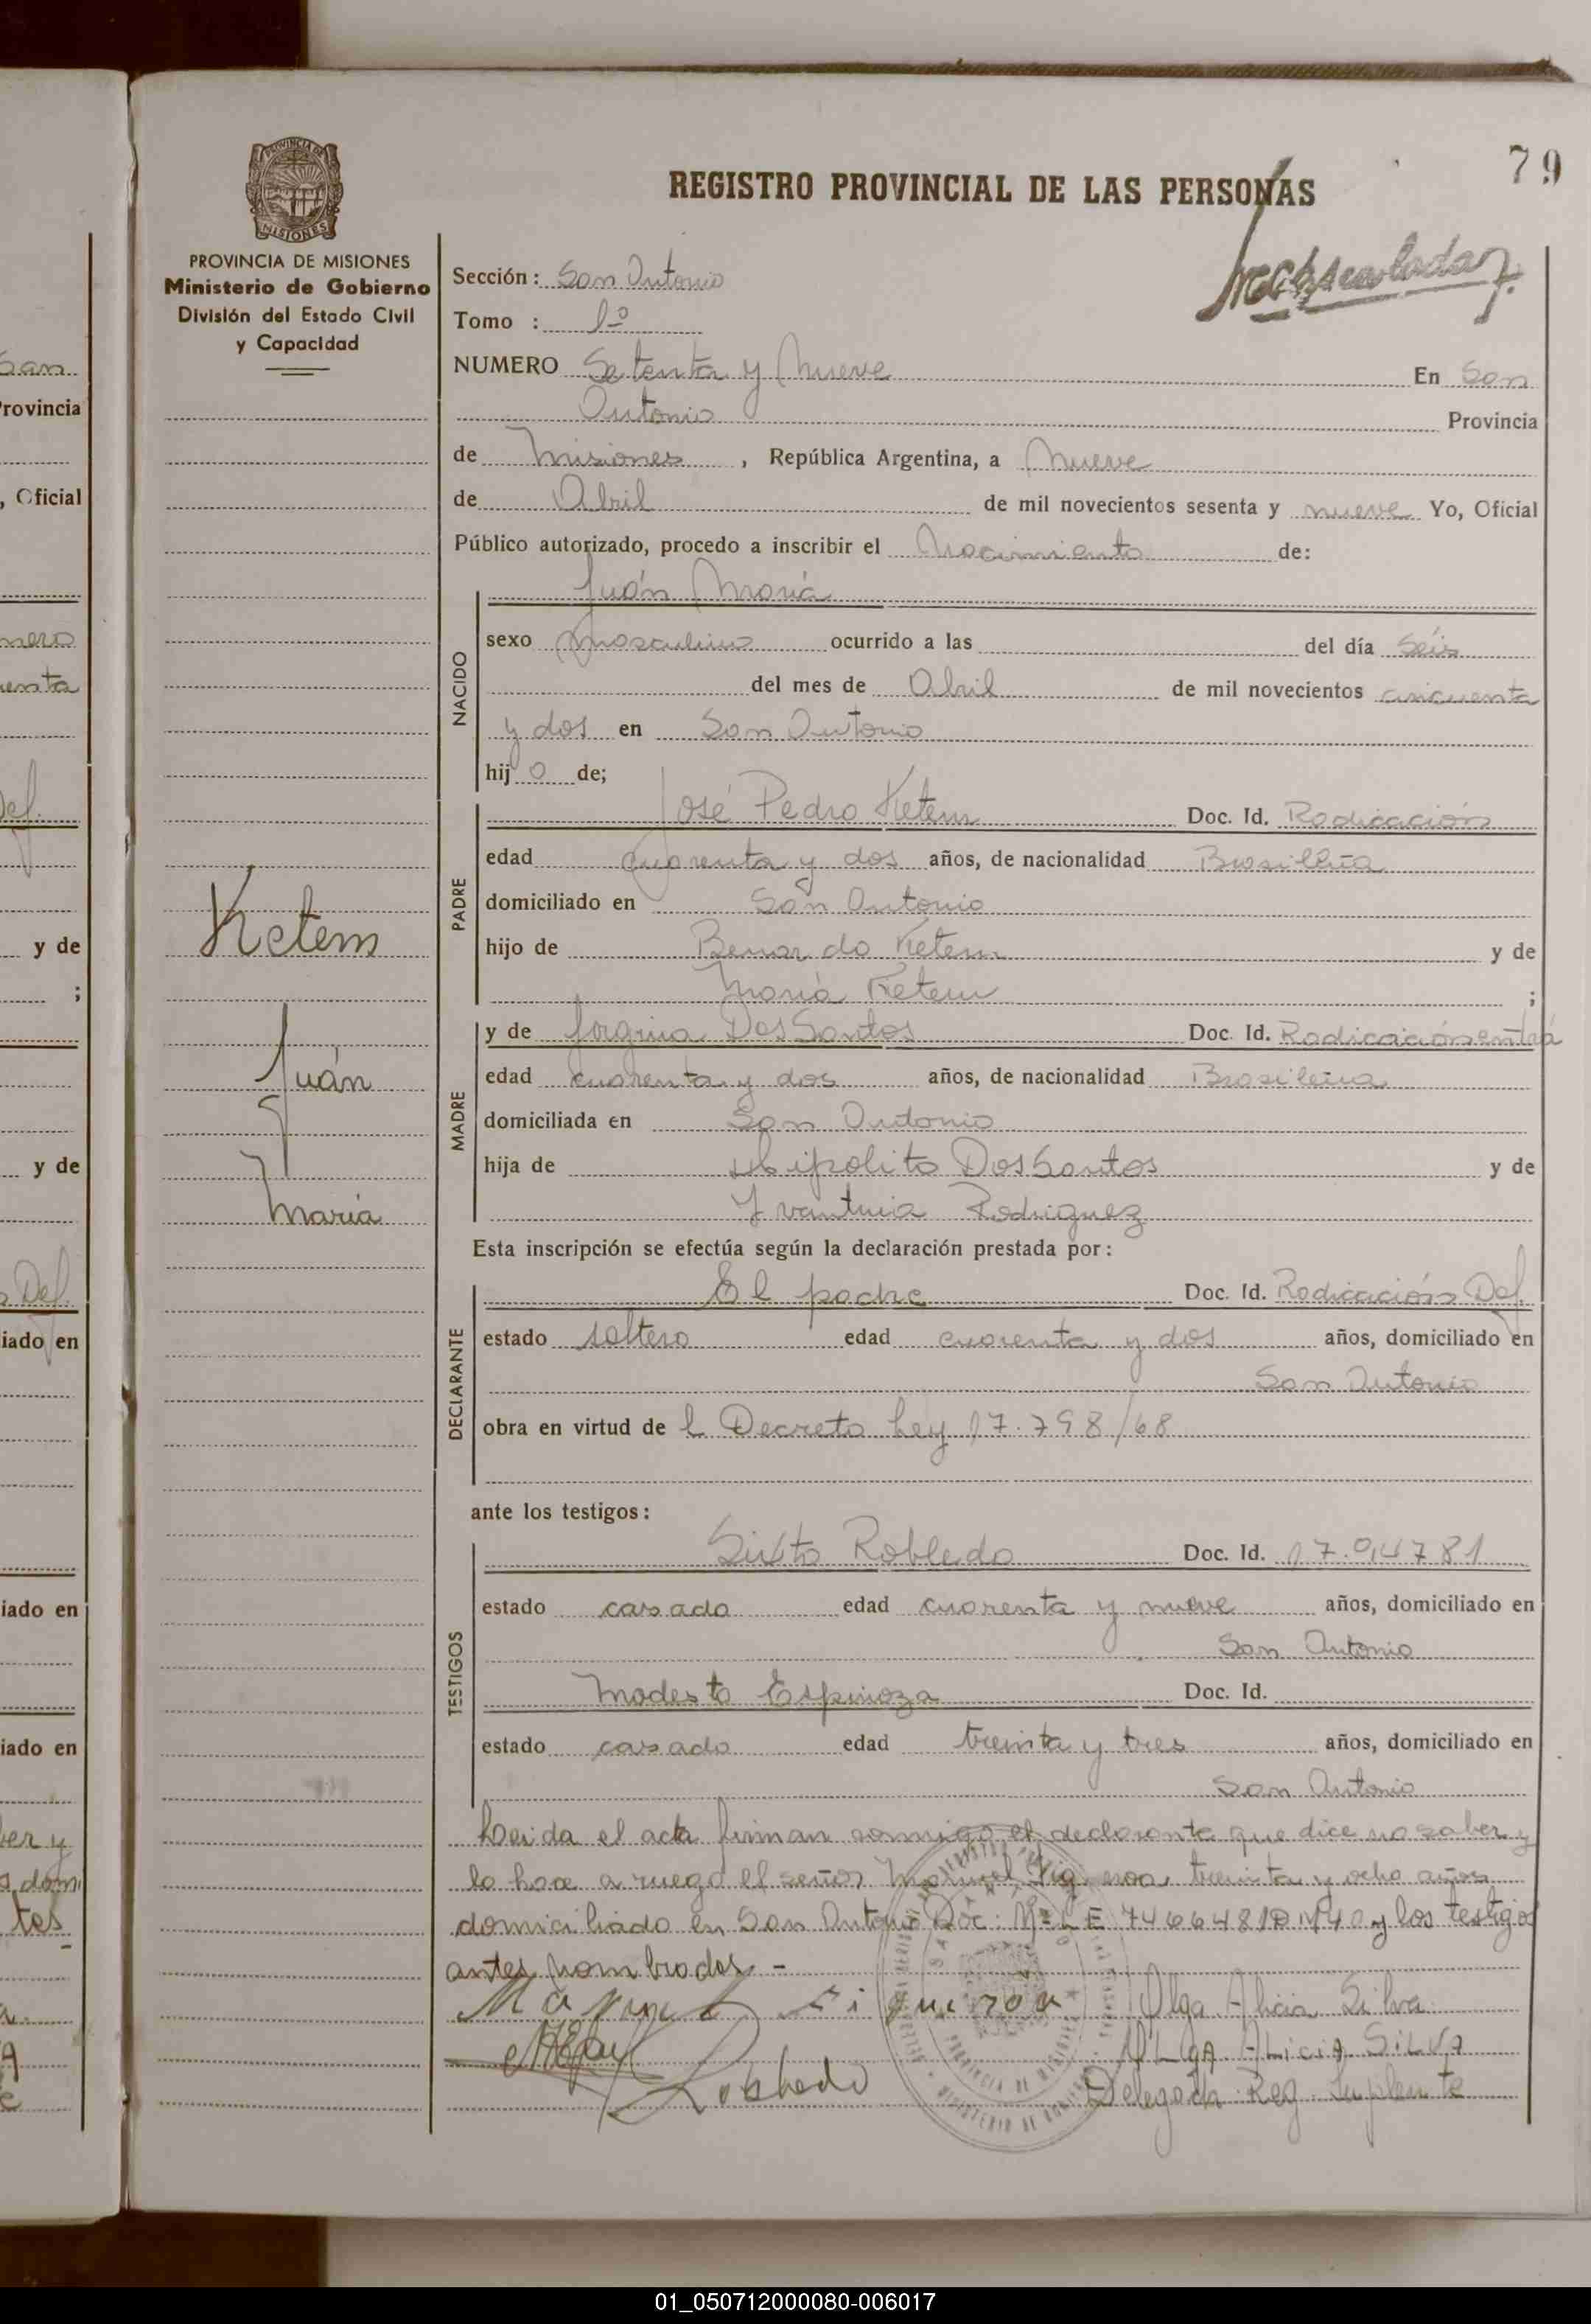 79
REGISTRO PROVINCIAL DE LAS PERSONAS
PROVINCIA DE MISIONES
Ministerio de Gobierno
División del Estado Civil
y Capacidad
Sección: San Antonio
Tomo : 1º
NUMERO Setenta y Nueve En San
Antonio Provincia
de Misiones, República Argentina, a Nueve
de Abril de mil novecientos sesenta y nueve Yo, Oficial
Público autorizado, procedo a inscribir el Nacimiento de:
Juán María
NACIDO
sexo masculino ocurrido a las del día Séis
del mes de Abril de mil novecientos cincuenta
y dos en San Antonio
hijo de;
PADRE
José Pedro Ketem Doc. Id. Radicación
edad cuarenta y dos años, de nacionalidad Brasileña
domiciliado en San Antonio
hijo de Benardo Ketem y de
María Ketem ;
MADRE
y de Jorgina Dos Santos Doc. Id. Radicación
edad cuarenta y dos años, de nacionalidad Brasileña
domiciliada en San Antonio
hija de Hipolito Dos Santos y de
Rodriguez
Ketem
Juán
María
Esta inscripción se efectúa según la declaración prestada por:
DECLARANTE
El padre Doc. Id. Radicación Def.
estado soltero edad cuarenta y dos años, domiciliado en
San Antonio
obra en virtud de l Decreto Ley 17.798/68
ante los testigos:
TESTIGOS
Sixto Robledo Doc. Id.
estado casado edad cuarenta y nueve años, domiciliado en
San Antonio
Modesto Espinoza Doc. Id.
estado casado edad treinta y tres años, domiciliado en
San Antonio
Leida el acta firman conmigo el declarante que dice no saber y
lo hace a ruego el señor Manuel treinta y ocho años
domiciliado en San Antonio Doc. Nº LE y los testigos
antes nombrados -
Manuel Olga Alicia Silva
OLGA ALICIA SILVA
Robledo Delegada Reg. Suplente
San
Provincia
, Oficial
y de
;
y de
Def.
iado en
iado en
iado en
01_050712000080-006017